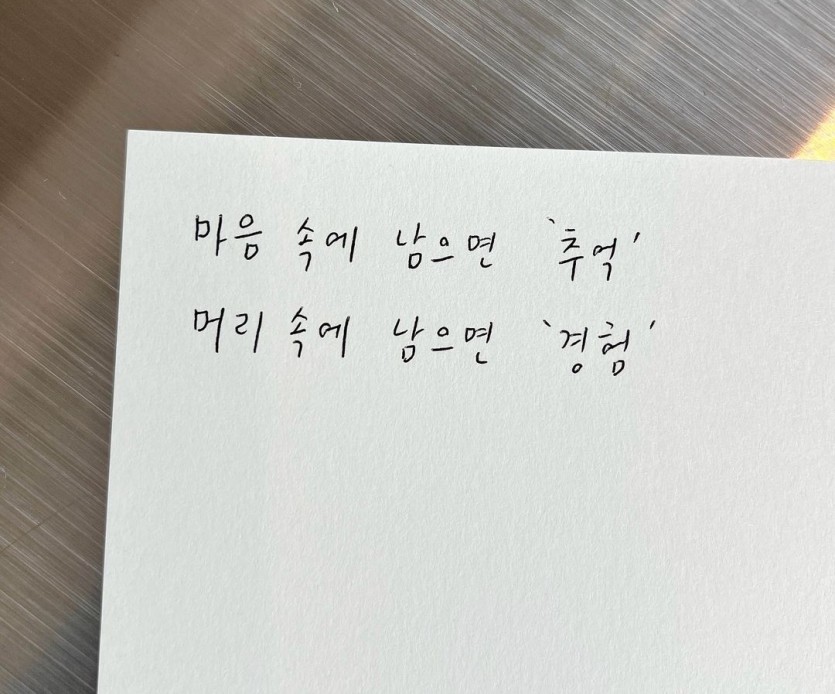 마음 속에 남으면 '추억'
머리 속에 남으면 '경험'